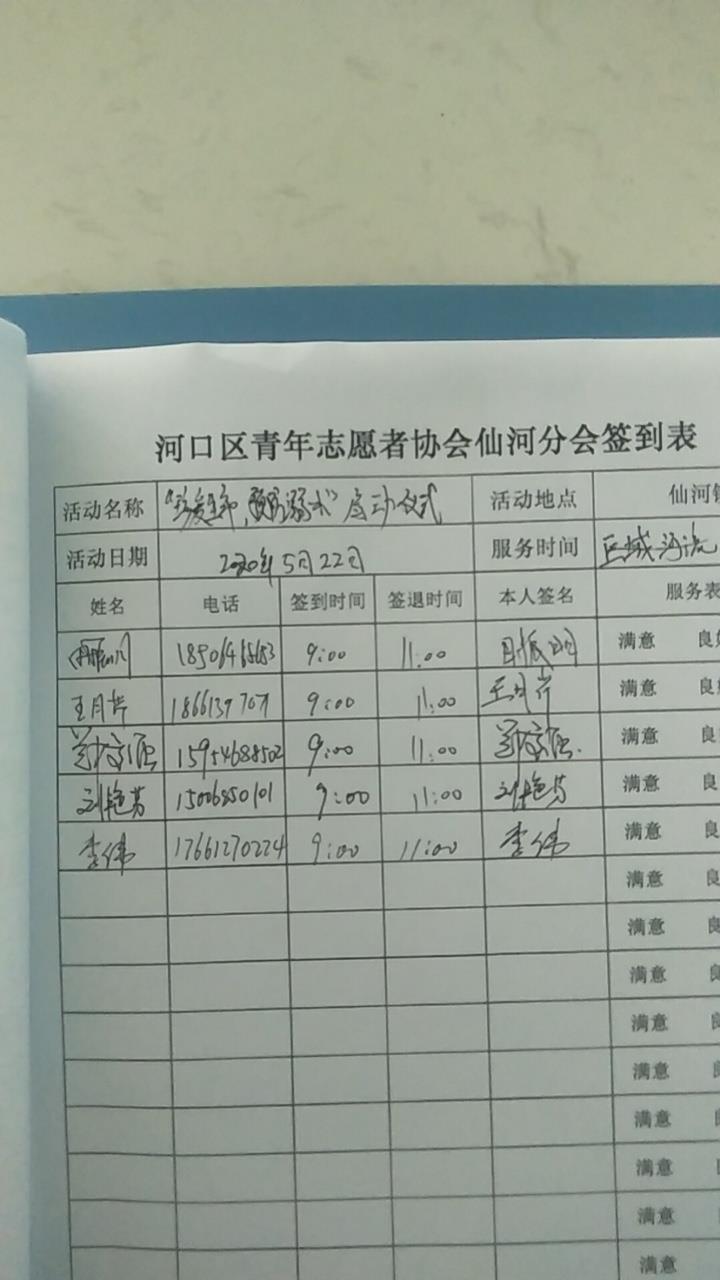 河口区青年志愿者协会仙河分会签到表
活动名称 "珍爱生命,预防溺水"启动仪式 活动地点 仙河镇
活动日期 2020年5月22日 服务时间 区域河流
姓名 电话 签到时间 签退时间 本人签名 服务表
9:00 11:00 满意 良好
王月芹 1866139 9:00 11:00 王月芹 满意 良好
15954688502 9:00 11:00 满意 良
刘艳芳 15006850101 9:00 11:00 刘艳芳 满意 良
李伟 17661270224 9:00 11:00 李伟 满意 良
满意 良
满意 良
满意 良
满意 良
满意 良
满意
满意
满意
满意